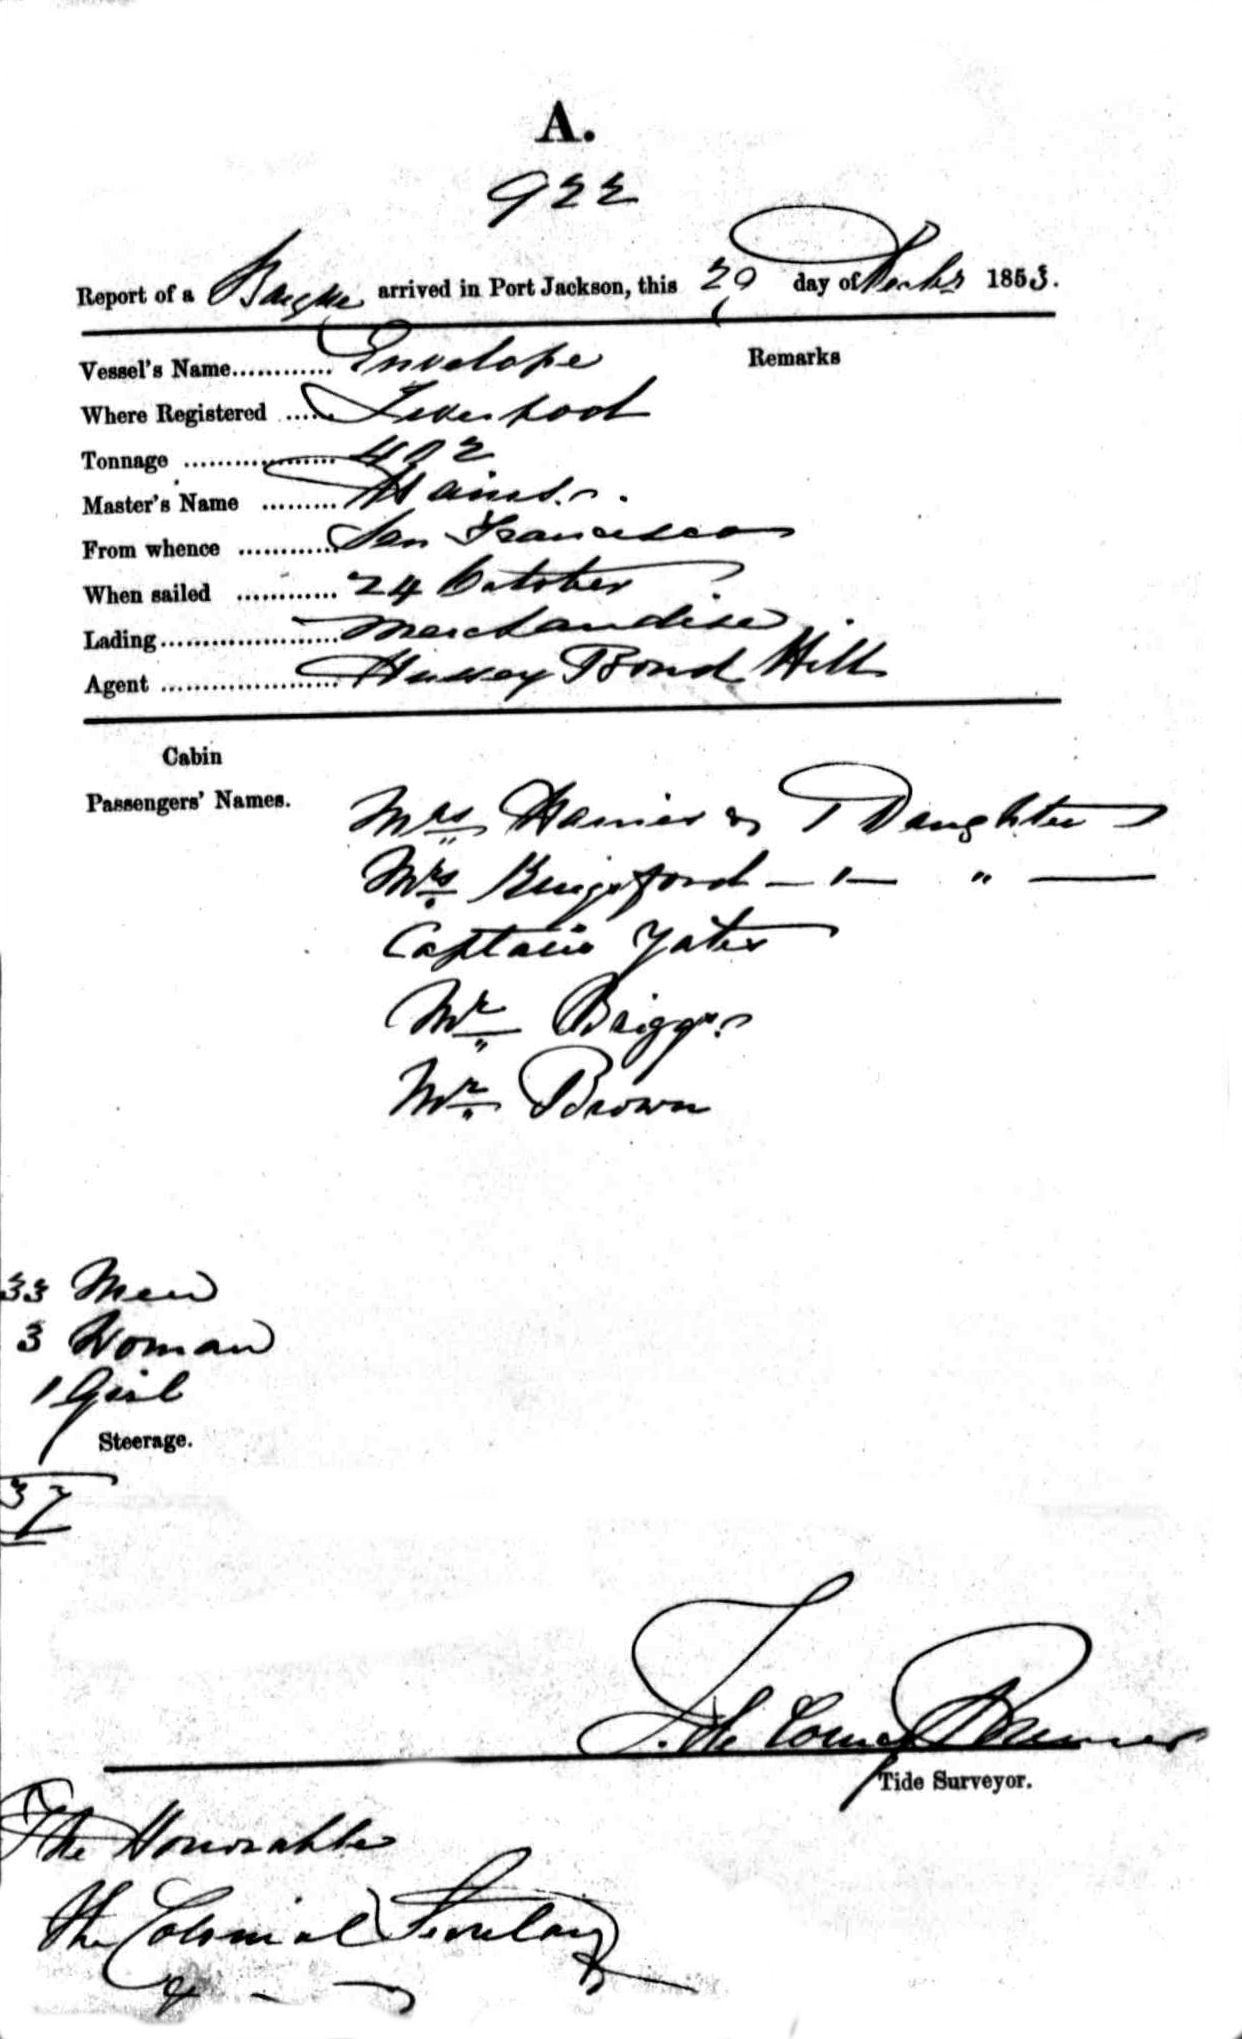 A.
922
Report of a Barque arrived in Port Jackson, this 29 day of Decbr 1853.
Vessel's Name............ Envelope
Remarks
Where Registered ..... Liverpool
Tonnage .................. 402
Master's Name ......... Haines.
From whence ............ San Francisco
When sailed ............ 24 October
Lading..................... Merchandise
Agent ..................... Hussey Bond Hill
Cabin
Passengers' Names.
Mrs Haines & 1 Daughter
Mrs Kingsford — 1 — " —
Captain Yates
Mr Briggs
Mr Brown
33 Men
3 Woman
1 Girl
Steerage.
37
Tide Surveyor.
The Honorable
The Colonial Secretary